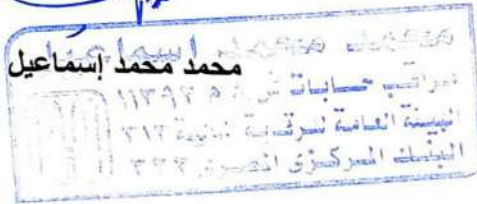 محمد محمد اسماعيل
محمد محمد إسماعيل
مراقب حسابات
الهيئة العامة للرقابة المالية ٣١٢
البنك المركزى المصرى